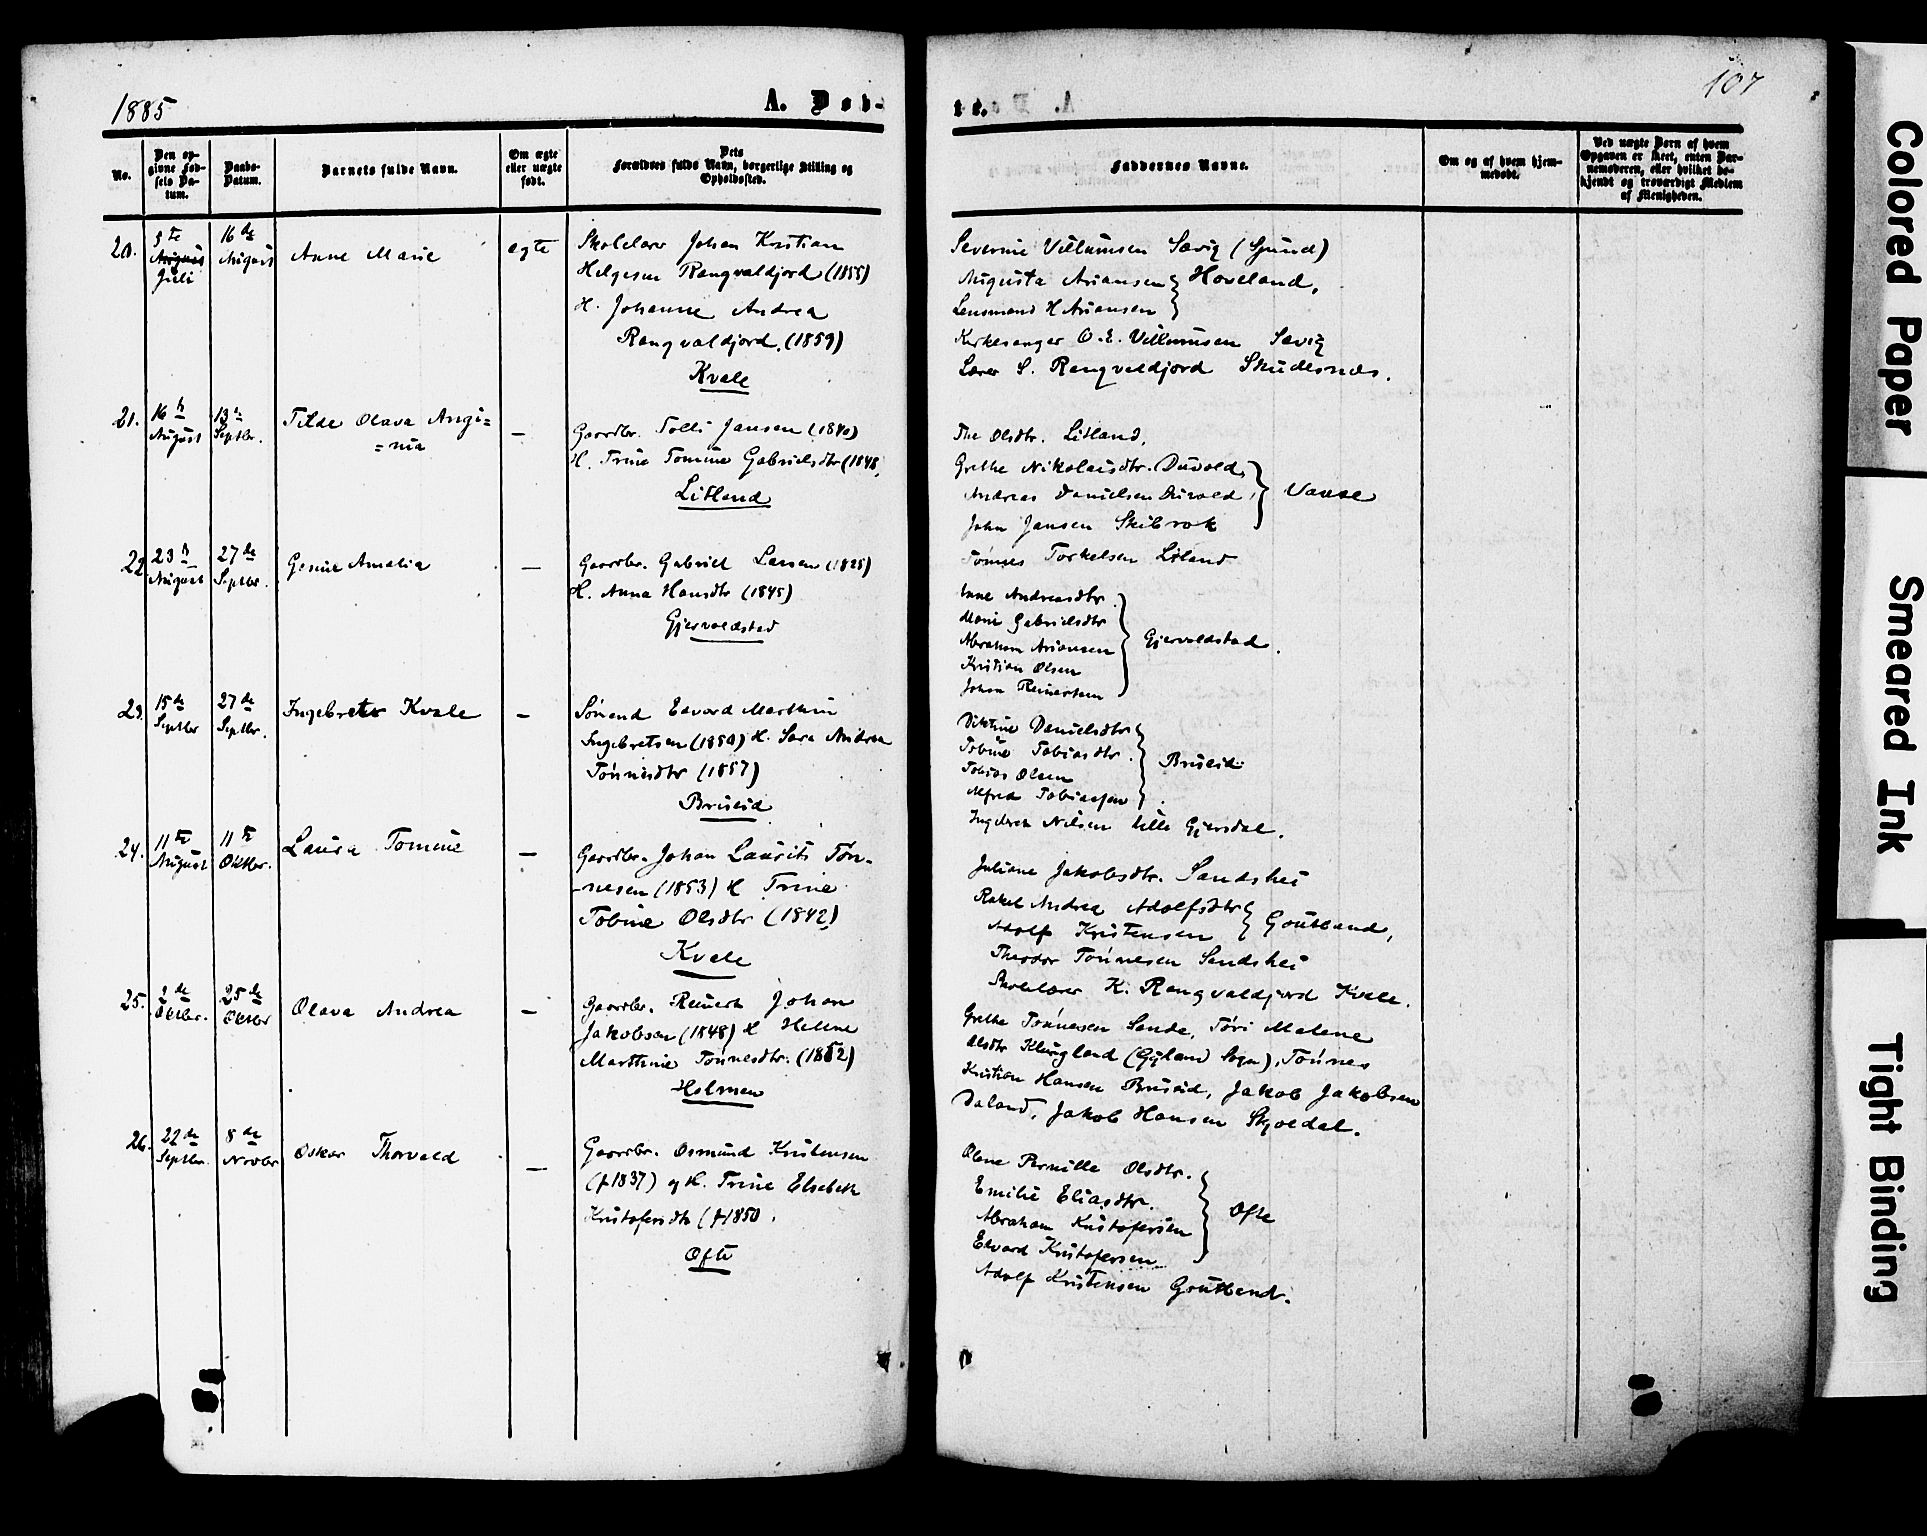 1885
A. Døb-
te.
107
No.
Den op-
givne Fød-
sels Da-
tum.
Daabs-
Datum.
Barnets fulde Navn.
Om ægte
eller uægte
født.
Dets
Forældres fulde Navn, borgerlige Stilling og
Opholdssted.
Faddernes Navne.
Om og af hvem hjem-
medøbt.
Ved uægte Børn af hvem
Opgaven er skeet, enten Bar-
nemoderen, eller hvilket be-
kjendt og troværdigt Medlem
af Menigheden.
20.
5te
August
Juli
16de
August
Anne Marie
egte
Skolelærer Johan Kristian
Helgesen Rangvaldjord (1855)
H. Johanne Andrea
Rangvaldjord (1859)
Kvale
Severine Villumsen Sævig (Spind)
Augusta Ariansen } Hoveland,
Lensmand H Ariansen
Kirkesanger O. E. Villumsen Sævig
Lærer S. Rangvaldjord Skudesnæs.
21.
16
August
13
Septbr.
Tilde Olava Angi=
=nia
–
Gaardbr. Tolli Jansen (1840)
H. Trine Tomine Gabrielsdtr (1848,
Litland
Olsdtr. Litland,
Grethe Nikolaisdtr. Duvold,
Andreas Danielsen Duvold, } Vanse
John Jansen Skibrok
Tønnes Torkelsen Litland
22
23
August
27de
Septbr.
Gesine Amalia
–
Gaardbr. Gabriel Larsen (1825)
H. Anna Hansdtr (1845)
Gjervoldstad
Anne Andreasdtr.
Marie Gabrielsdtr
Abraham Ariansen } Gjervoldstad.
Kristian Olsen
Johan Reinertsen
23.
15de
Septbr
27de
Septbr.
Ingebrets Kvale
–
Sønend Edvard Marthin
Ingebretsen (1850) H. Sara Andrea
Tønnesdtr (1857)
Brüseid
Danielsdtr
Tobine Tobiasdtr.
Tobias Olsen } Brüseid
Alfred Tobiassen
Ingebret Nilsen Lille Gjersdal.
24.
11te
August
11te
Oktbr.
Laura Tomine
–
Gaardbr. Johan Laurits Tøn-
-nesen (1853) H Trine
Tobine Olsdtr (1842)
Kvale
Juliane Jakobsdtr. Sandshei
Rakel Andrea Adolfsdtr } Grutland,
Adolf Kristensen
Theodor Tønnesen Sandshei
Skolelærer K. Rangvaldjord Kvale.
25.
2de
Oktbr.
25de
Oktbr
Olava Andrea
–
Gaardbr. Reinert Johan
Jakobsen (1848) H Helene
Marthine Tønnesdtr. (1852)
Holmen
Grethe Tønnesen Sande, Tøri Malene
Olsdtr Klungland (Gyland Sogn), Tønnes
Kristian Hansen Brüseid, Jakob Jakobsen
Daland, Jakob Hansen Skjoldal.
26.
22de
Septbr.
8de
Novbr
Oskar Thorvald
–
Gaardbr. Osmund Kristensen
(f 1837) og H. Trine Elsebeth
Kristofersdtr (f 1850.
Ofte
Olene Pernille Olsdtr.
Emilie Eliasdtr.
Abraham Kristofersen } Ofte
Edvard Kristofersen
Adolf Kristensen Grutland.
Colored Paper
Smeared Ink
Tight Binding